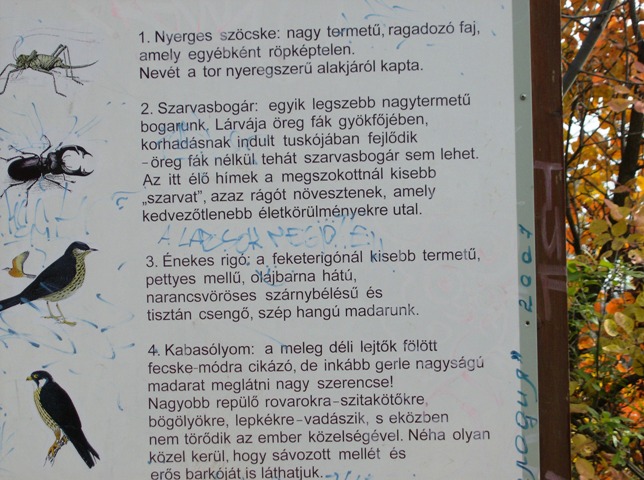 1. Nyerges szöcske: nagy termetű, ragadozó faj,
amely egyébként röpképtelen.
Nevét a tor nyeregszerű alakjáról kapta.
2. Szarvasbogár: egyik legszebb nagytermetű
bogarunk, Lárvája öreg fák gyökfőjében,
korhadásnak indult tuskójában fejlődik
-öreg fák nélkül tehát szarvasbogár sem lehet.
Az itt élő hímek a megszokottnál kisebb
„szarvat”, azaz rágót növesztenek, amely
kedvezőtlenebb életkörülményekre utal.
3. Énekes rigó: a feketerigónál kisebb termetű,
pettyes mellű, olajbarna hátú,
narancsvöröses szárnybélésű és
tisztán csengő, szép hangú madarunk.
4. Kabasólyom: a meleg déli lejtők fölött
fecske-módra cikázó, de inkább gerle nagyságú
madarat meglátni nagy szerencse!
Nagyobb repülő rovarokra-szitakötőkre,
bögölyökre, lepkékre-vadászik, s eközben
nem törődik az ember közelségével. Néha olyan
közel kerül, hogy sávozott mellét és
erős barkóját is láthatjuk.
2007